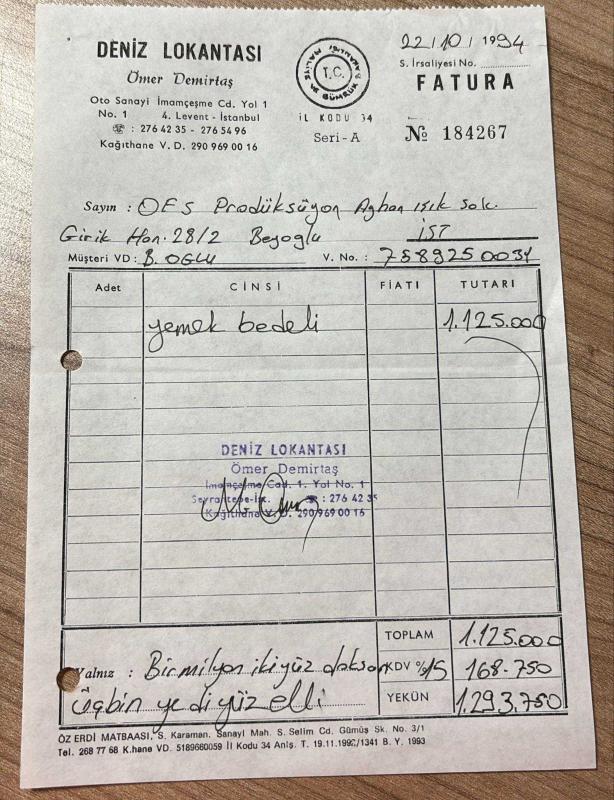 DENİZ LOKANTASI
Ömer Demirtaş
Oto Sanayi İmamçeşme Cd. Yol 1
No. 1 4. Levent - İstanbul
☎ : 276 42 35 - 276 54 96
Kağıthane V. D. 290 969 00 16
MALİYE VE GÜMRÜK BAKANLIĞI
T.C.
İL KODU 34
Seri - A
22/10/1994
S. İrsaliyesi No.
FATURA
№ 184267
Sayın : OFS Prodüksüyon Ayhan ışık sok.
Girik Han. 28/2 Beyoglu İST
Müşteri VD : B. OGLU V. No. : 7589250031
Adet CİNSİ FİATI TUTARI
yemek bedeli 1.125.000
DENİZ LOKANTASI
Ömer Demirtaş
İmamçeşme Cad. 1. Yol No. 1
Seyrantepe-İst. ☎ : 276 42 35
Kağıthane V. D. 290 969 00 16
TOPLAM 1.125.000
Yalnız : Bir milyon ikiyüz doksan KDV %15 168.750
Üçbin yediyüz elli YEKÜN 1.293.750
ÖZ ERDİ MATBAASI, S. Karaman. Sanayi Mah. S. Selim Cd. Gümüş Sk. No. 3/1
Tel. 268 77 68 K.hane VD. 5189660059 İl Kodu 34 Anlş. T. 19.11.1992/1341 B. Y. 1993